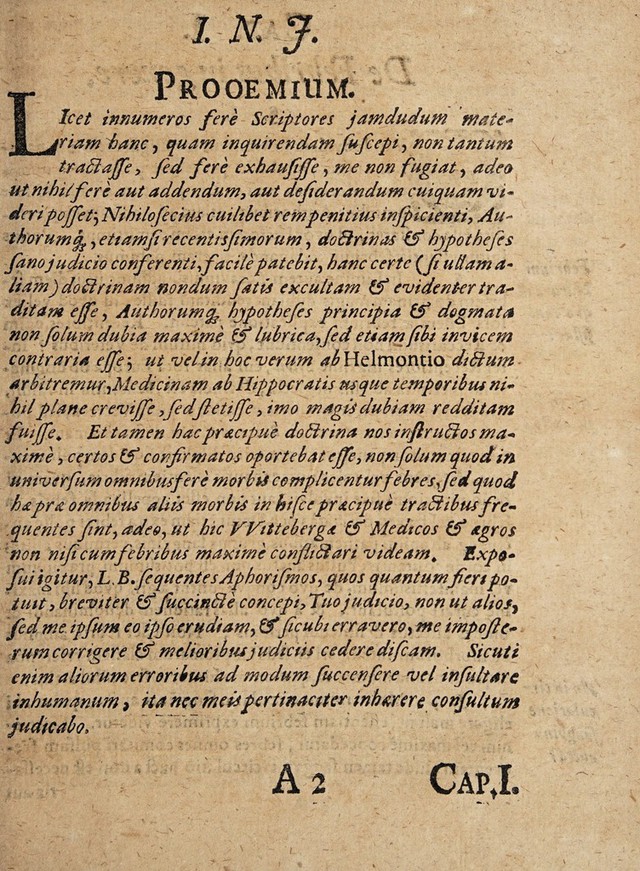 I. N. J.
PROOEMIUM.
LIcet innumeros ferè Scriptores jamdudum mate-
riam hanc, quam inquirendam ſuſcepi, non tantum
tractaſſe, ſed ferè exhauſiſſe, me non fugiat, adeo
ut nihil ferè aut addendum, aut deſiderandum cuiquam vi-
deri poſſet; Nihiloſecius cuilibet rem penitius inſpicienti, Au-
thorumq́;, etiamſi recentiſſimorum, doctrinas & hypotheſes
ſano judicio conferenti, facilè patebit, hanc certe (ſi ullam a-
liam) doctrinam nondum ſatis excultam & evidenter tra-
ditam eſſe, Authorumq́; hypotheſes principia & dogmata
non ſolum dubia maximè & lubrica, ſed etiam ſibi invicem
contraria eſſe; ut vel in hoc verum ab Helmontio dictum
arbitremur, Medicinam ab Hippocratis usque temporibus ni-
hil plane creviſſe, ſed ſtetiſſe, imo magis dubiam redditam
fuiſſe. Et tamen hac præcipuè doctrina nos inſtructos ma-
ximè, certos & confirmatos oportebat eſſe, non ſolum quod in
univerſum omnibus ferè morbis complicentur febres, ſed quod
hæ præ omnibus aliis morbis in hiſce præcipuè tractibus fre-
quentes ſint, adeo, ut hic VVittebergæ & Medicos & ægros
non niſi cum febribus maximè conflictari videam. Expo-
ſui igitur, L. B. ſequentes Aphoriſmos, quos quantum fieri po-
tuit, breviter & ſuccinctè concepi, Tuo judicio, non ut alios,
ſed me ipſum eo ipſo erudiam, & ſicubi erravero, me impoſte-
rum corrigere & melioribus judiciis cedere diſcam. Sicuti
enim aliorum erroribus ad modum ſuccenſere vel inſultare
inhumanum, ita nec meis pertinaciter inhærere conſultum
judicabo.
A 2 CAP. I.